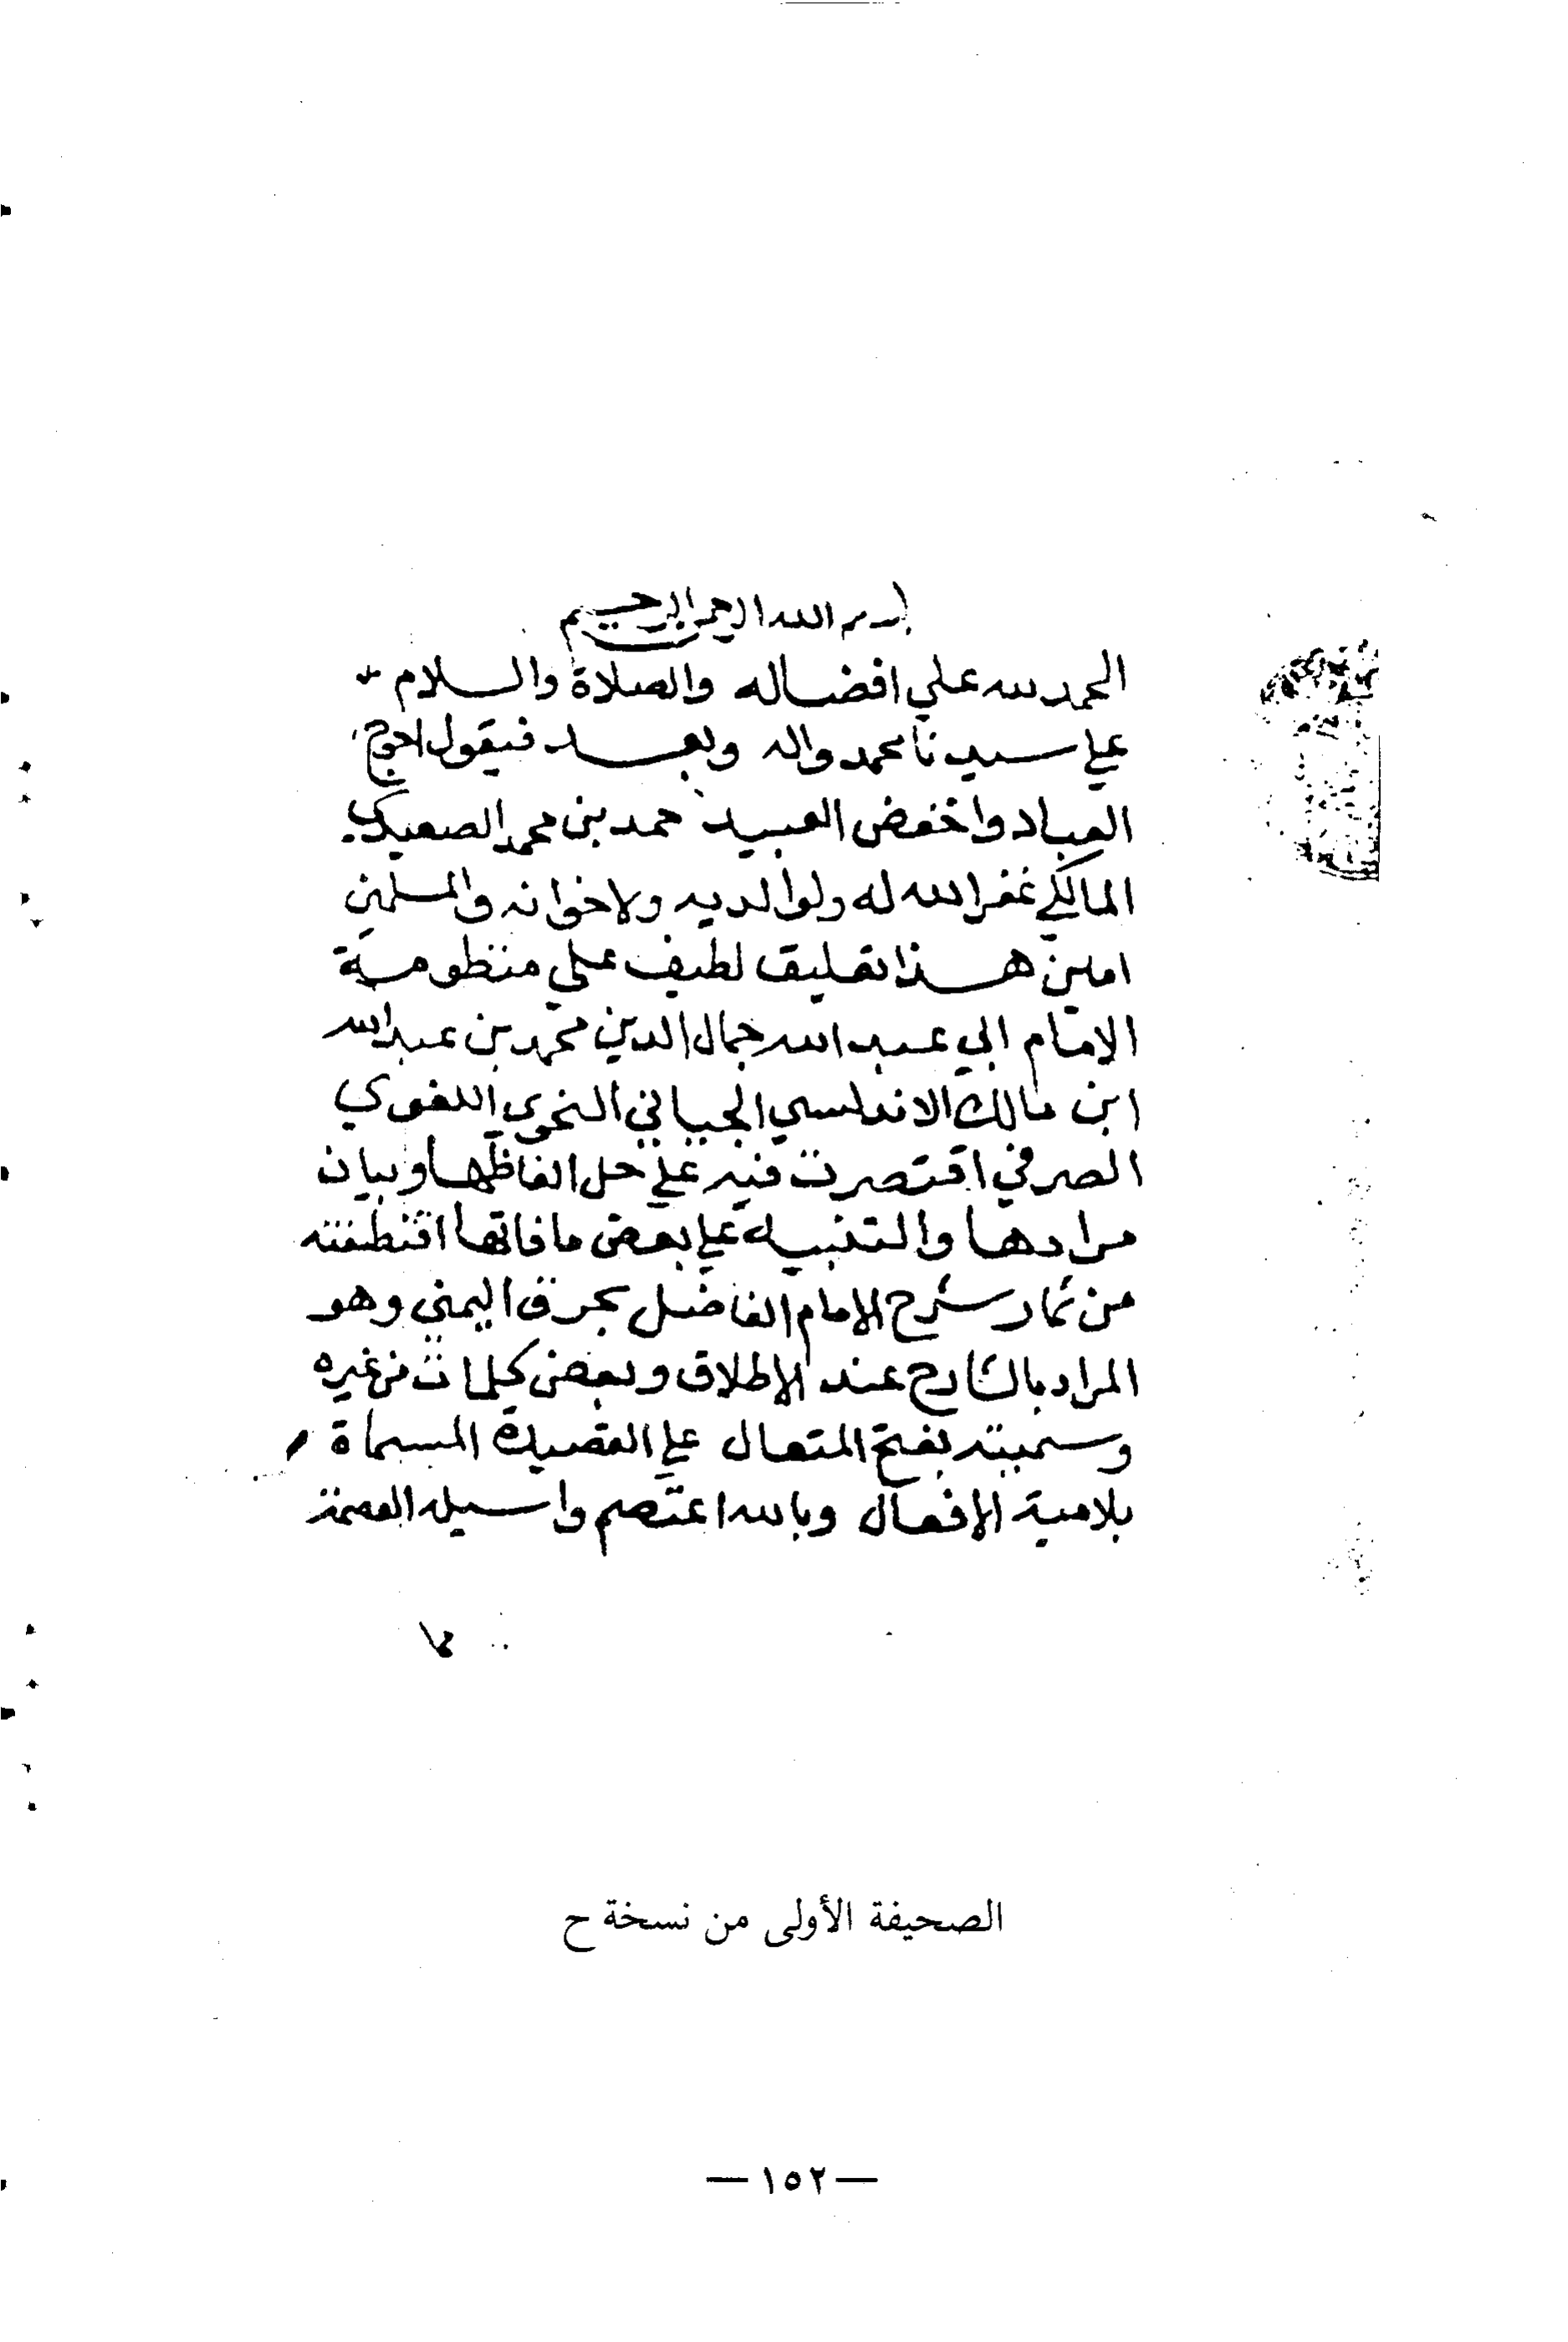 بسم الله الرحمن الرحيم
الحمد لله علي افضاله والصلاة والسلام
علي سيدنا محمد واله وبعد فيقول احوج
العباد واخفض العبيد حمد بن محمد الصعيدي
المالكي غفر الله له ولوالديه ولاخوانه والمسلمين
امين هذا تعليق لطيف علي منظومة
الامام ابي عبد الله جمال الدين محمد بن عبد الله
ابن مالك الاندلسي الجياني النحوي اللغوي
الصرفي اقتصرت فيه علي حل الفاظها وبيان
مرادها والتنبيه علي بعض ما فاتها اقتطفته
من ثمار شرح الامام الفاضل بحرق اليمني وهو
المراد بالشارح عند الاطلاق وبعض كلمات من غيره
وسميته بفتح المتعال علي القصيدة المسماة
بلامية الافعال وبالله اعتصم واسيله العصمة
الصحيفة الأولى من نسخة ح
— ١٥٢ —